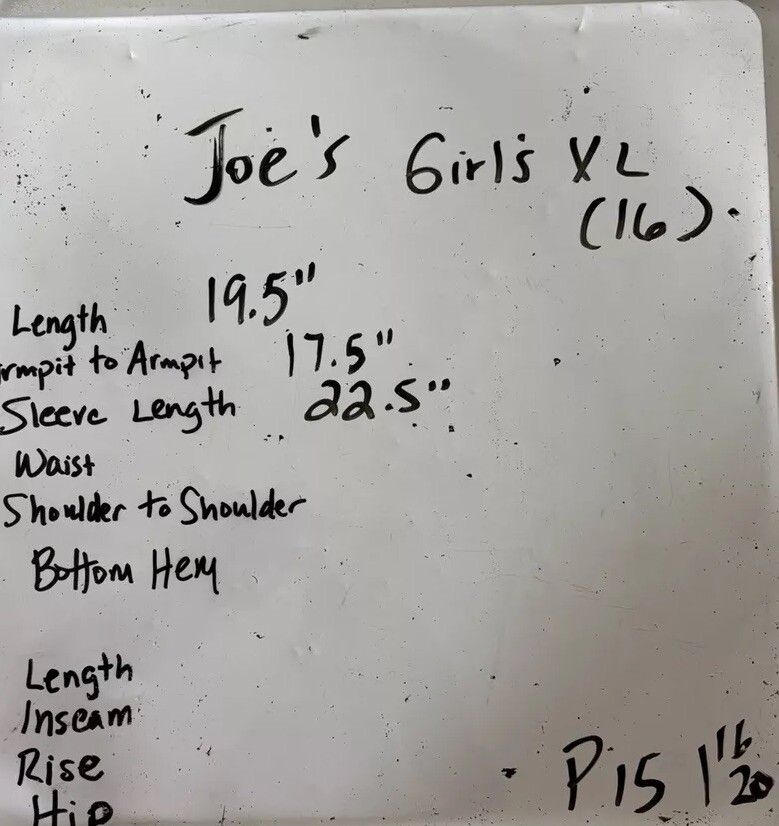 Joe's Girl's XL
(16).
Length 19.5"
rmpit to Armpit 17.5"
Sleeve Length 22.5"
Waist
Shoulder to Shoulder
Bottom Hem
Length
Inseam
Rise
Hip
P15 1"16
20